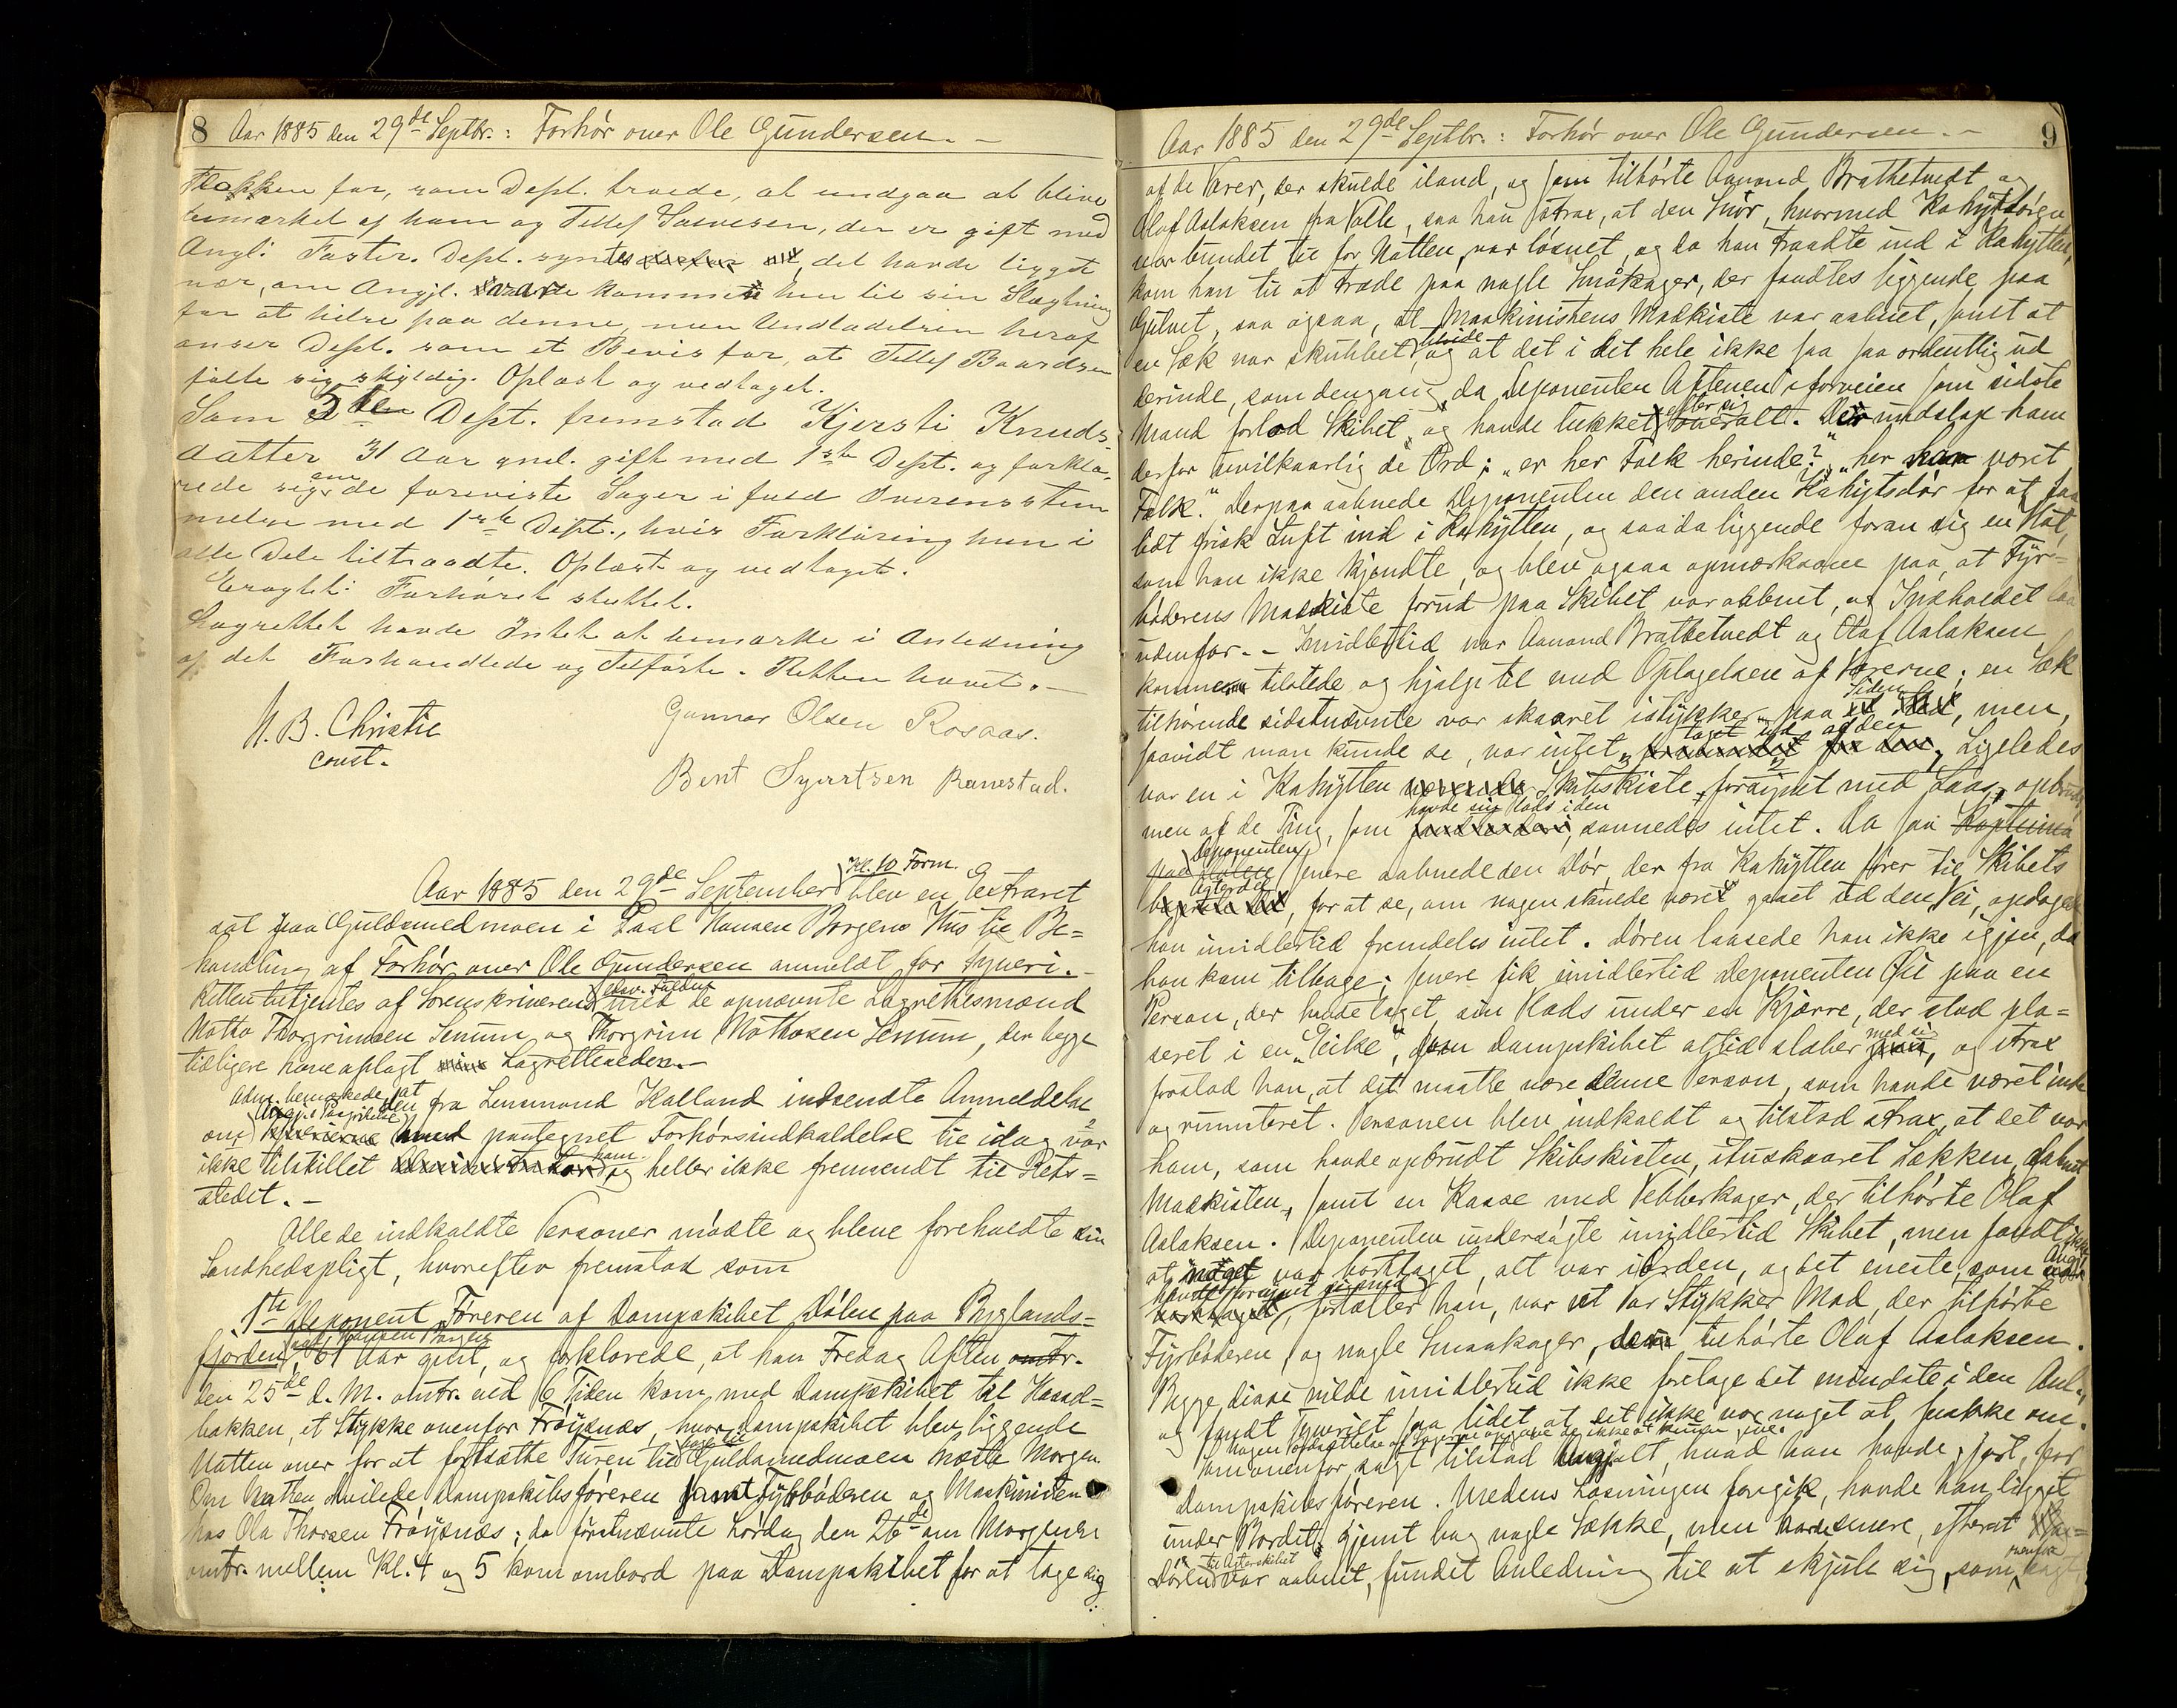 8 Aar 1885 den 29de Septbr.: Forhør over Ole Gundersen.-
Flokken for, som Dept. troede, at undgaa at blive
bemærket af ham og Tellef Salvesen, der er gift med
Angl: Faster. Dept. syntes at det havde ligget
nær, om Angjl. var kommen hen til sin Slægtning
for at hilse paa denne, men Undladelsen heraf
anser Dept. som et Bevis for, at Tellef Baardsen
følte sig skyldig. Oplæst og vedtaget.
Som 5te Dept. fremstod Kjersti Knuds-
datter 31 Aar gml. gift med 1ste Dept. og forkla-
rede sig om de foreviste Sager i fuld Overensstem
melse med 1ste Dept., hvis Forklaring hun i
alle Dele tiltraadte. Oplæst og vedtaget.
Eragtet: Forhøret sluttet.
Lagrettet havde Intet at bemærke i Anledning
af det Forhandlede og Tilførte. Retten hævet.-
N. B. Christie
const.
Gunnar Olsen Rosaas.
Bent Syvertsen Ranestad.
Aar 1885 den 29de September Kl. 10 Form. blev en Extraret
sat paa Guldsmedmoen i Paal Hansen Borgens Hus til Be-
handling af Forhør over Ole Gundersen anmeldt for Tyveri.-
Retten betjentes af Sorenskriverens edsv. Fuldm. med de opnævnte Lagrettesmænd
Notto Thorgrimsen Senum og Thorgrim Nottosen Senum, der begge
tidligere have aflagt Lagretteseden.-
Adm. bemærkede, at
den fra Lensmand Kalland indsendte Anmeldelse
om Angjs Paagribelse med paategnet Forhørsindkaldelse til idag var
ikke tilstillet ham og heller ikke fremsendt til Rets-
stedet.-
Alle de indkaldte Personer mødte og bleve foreholdte sin
Sandhedspligt, hvorefter fremstod som
1ste Deponent Føreren af Dampskibet Dølen paa Byglands-
fjorden, Paal Hansen Borgen 61 Aar gml, og forklarede, at han Fredag Aften
den 25de d. M. omtr. ved 6 Tiden kom med Dampskibet til Haand-
bakken, et Stykke ovenfor Frøysnæs, hvor Dampskibet blev liggende
Natten over for at fortsætte Turen lige til Guldsmedmoen næste Morgen.
Om Natten hvilede Dampskibsføreren samt Fyrbøderen og Maskinisten
hos Ola Thorsen Frøysnæs; da førstnævnte Lørdag den 26de om Morgenen
omtr. mellem Kl. 4 og 5 kom ombord paa Dampskibet for at tage sig
Aar 1885 den 29de Septbr.: Forhør over Ole Gundersen.- 9
af de Varer, der skulde iland, og som tilhørte Aanond Brattetvedt og
Olaf Aslaksen fra Valle, saa han strax, at den Snor, hvormed Kahytdøren
var bundet til for Natten, var løsnet, og da han traadte ind i Kahytten,
kom han til at træde paa nogle Småkager, der fandtes liggende paa
Gulvet, saa ogsaa, at Maskinistens Madkiste var aabnet, samt at
en Sæk var skubbet tilside og at det i det hele ikke saa saa ordentlig ud
derinde, som dengang, da Deponenten Aftenen iforveien som sidste
Mand forlod Skibet, og havde lukket efter sig overalt. Der undslap ham
derfor uvilkaarlig de Ord; "er her Folk herinde?", "her har voret
Folk." Derpaa aabnede Deponenten den anden Kahytsdør for at faa
lidt frisk Luft ind i Kahytten, og saa da liggende foran sig en Hat,
som han ikke kjendte, og blev ogsaa opmærksom paa, at Fyr-
bøderens Madkiste forud paa Skibet var aabnet, og Indholdet laa
udenfor.- Imidlertid var Aanond Brattetvedt og Olaf Aslaksen
kommen tilstede og hjalp til med Optagelsen af Varerne; en Sæk
tilhørende sidstnævnte var skaaret istykker paa Siden, men,
saavidt man kunde se, var intet taget ud af den. Ligeledes
var en i Kahytten Skibskiste, forsynet med Laas, opbrudt,
men af de Ting, som havde sin Plads i den, savnedes intet. Da saa
Deponenten senere aabnede den Dør, der fra Kahytten fører til Skibets
Agterdel, for at se, om nogen skulde voret gaaet ud den Vei, opdagede
han imidlertid fremdeles intet. Døren laasede han ikke igjen, da
han kom tilbage; senere fik imidlertid Deponenten Øie paa en
Person, der havde taget sin Plads under en Kjærre, der stod pla-
seret i en "Eike", som Dampskibet altid slæber med sig, og strax
forstod han, at det maatte være denne Person, som havde været inde
og rumsteret. Personen blev indkaldt og tilstod strax, at det var
ham, som havde opbrudt Skibskisten, ituskaaret Sækken, aabnet
Madkisten, samt en Kasse med Pebberkager, der tilhørte Olaf
Aslaksen. Deponenten undersøgte imidlertid Skibet, men fandt ikke
at noget var borttaget, alt var iorden, og det eneste, som Angjl.
havde forsynet sig med, fortæller han, var et Par Stykker Mad, der tilhørte
Fyrbøderen, og nogle Smaakager, som tilhørte Olaf Aslaksen.
Begge disse vilde imidlertid ikke foretage det mindste i den Anl.,
og fandt Tyveriet saa lidet, at det ikke var noget at snakke om.
nogen Værdsættelse af Sagerne opgave de ikke at kunne give.
Som ovenfor sagt tilstod Angjældt, hvad han havde gjort, for
Dampskibsføreren. Medens Losningen foregik, havde han ligget
under Bordet, gjemt bag nogle Sække, men havde senere, efterat
Døren til Agterskibet var aabnet, fundet Anledning til at skjule sig, som ovenfor sagt